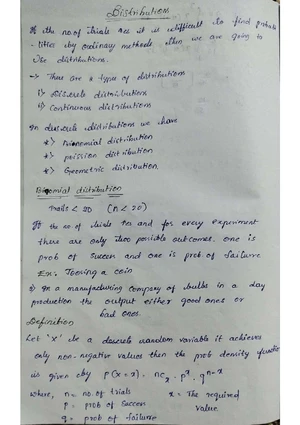 Distributions
If the no of Trials are it is difficult to find probabi
- lities by ordinary methods then we are going to
Use distributions.
-> There are 2 types of distributions
i) Discrete distributions
ii) Continuous distributions
In discrete distributions we have
*) Binomial distribution
*) poission distribution
*) Geometric distribution.
Binomial distribution
Trails < 20 (n < 20)
If the no of trials and for every experiment
there are only two possible outcomes. one is
prob of success and one is prob of failure
Ex: Tossing a coin
2) In a manufacturing company of bulbs in a day
production the output either good ones or
bad ones.
Definition
Let 'x' be a discrete random variable if achieves
only non-negative values then the prob density function
is given by P(X=x) = nCx . p^x . q^n-x
where, n = no. of trials x = The required
p = prob of success value.
q = prob of failure